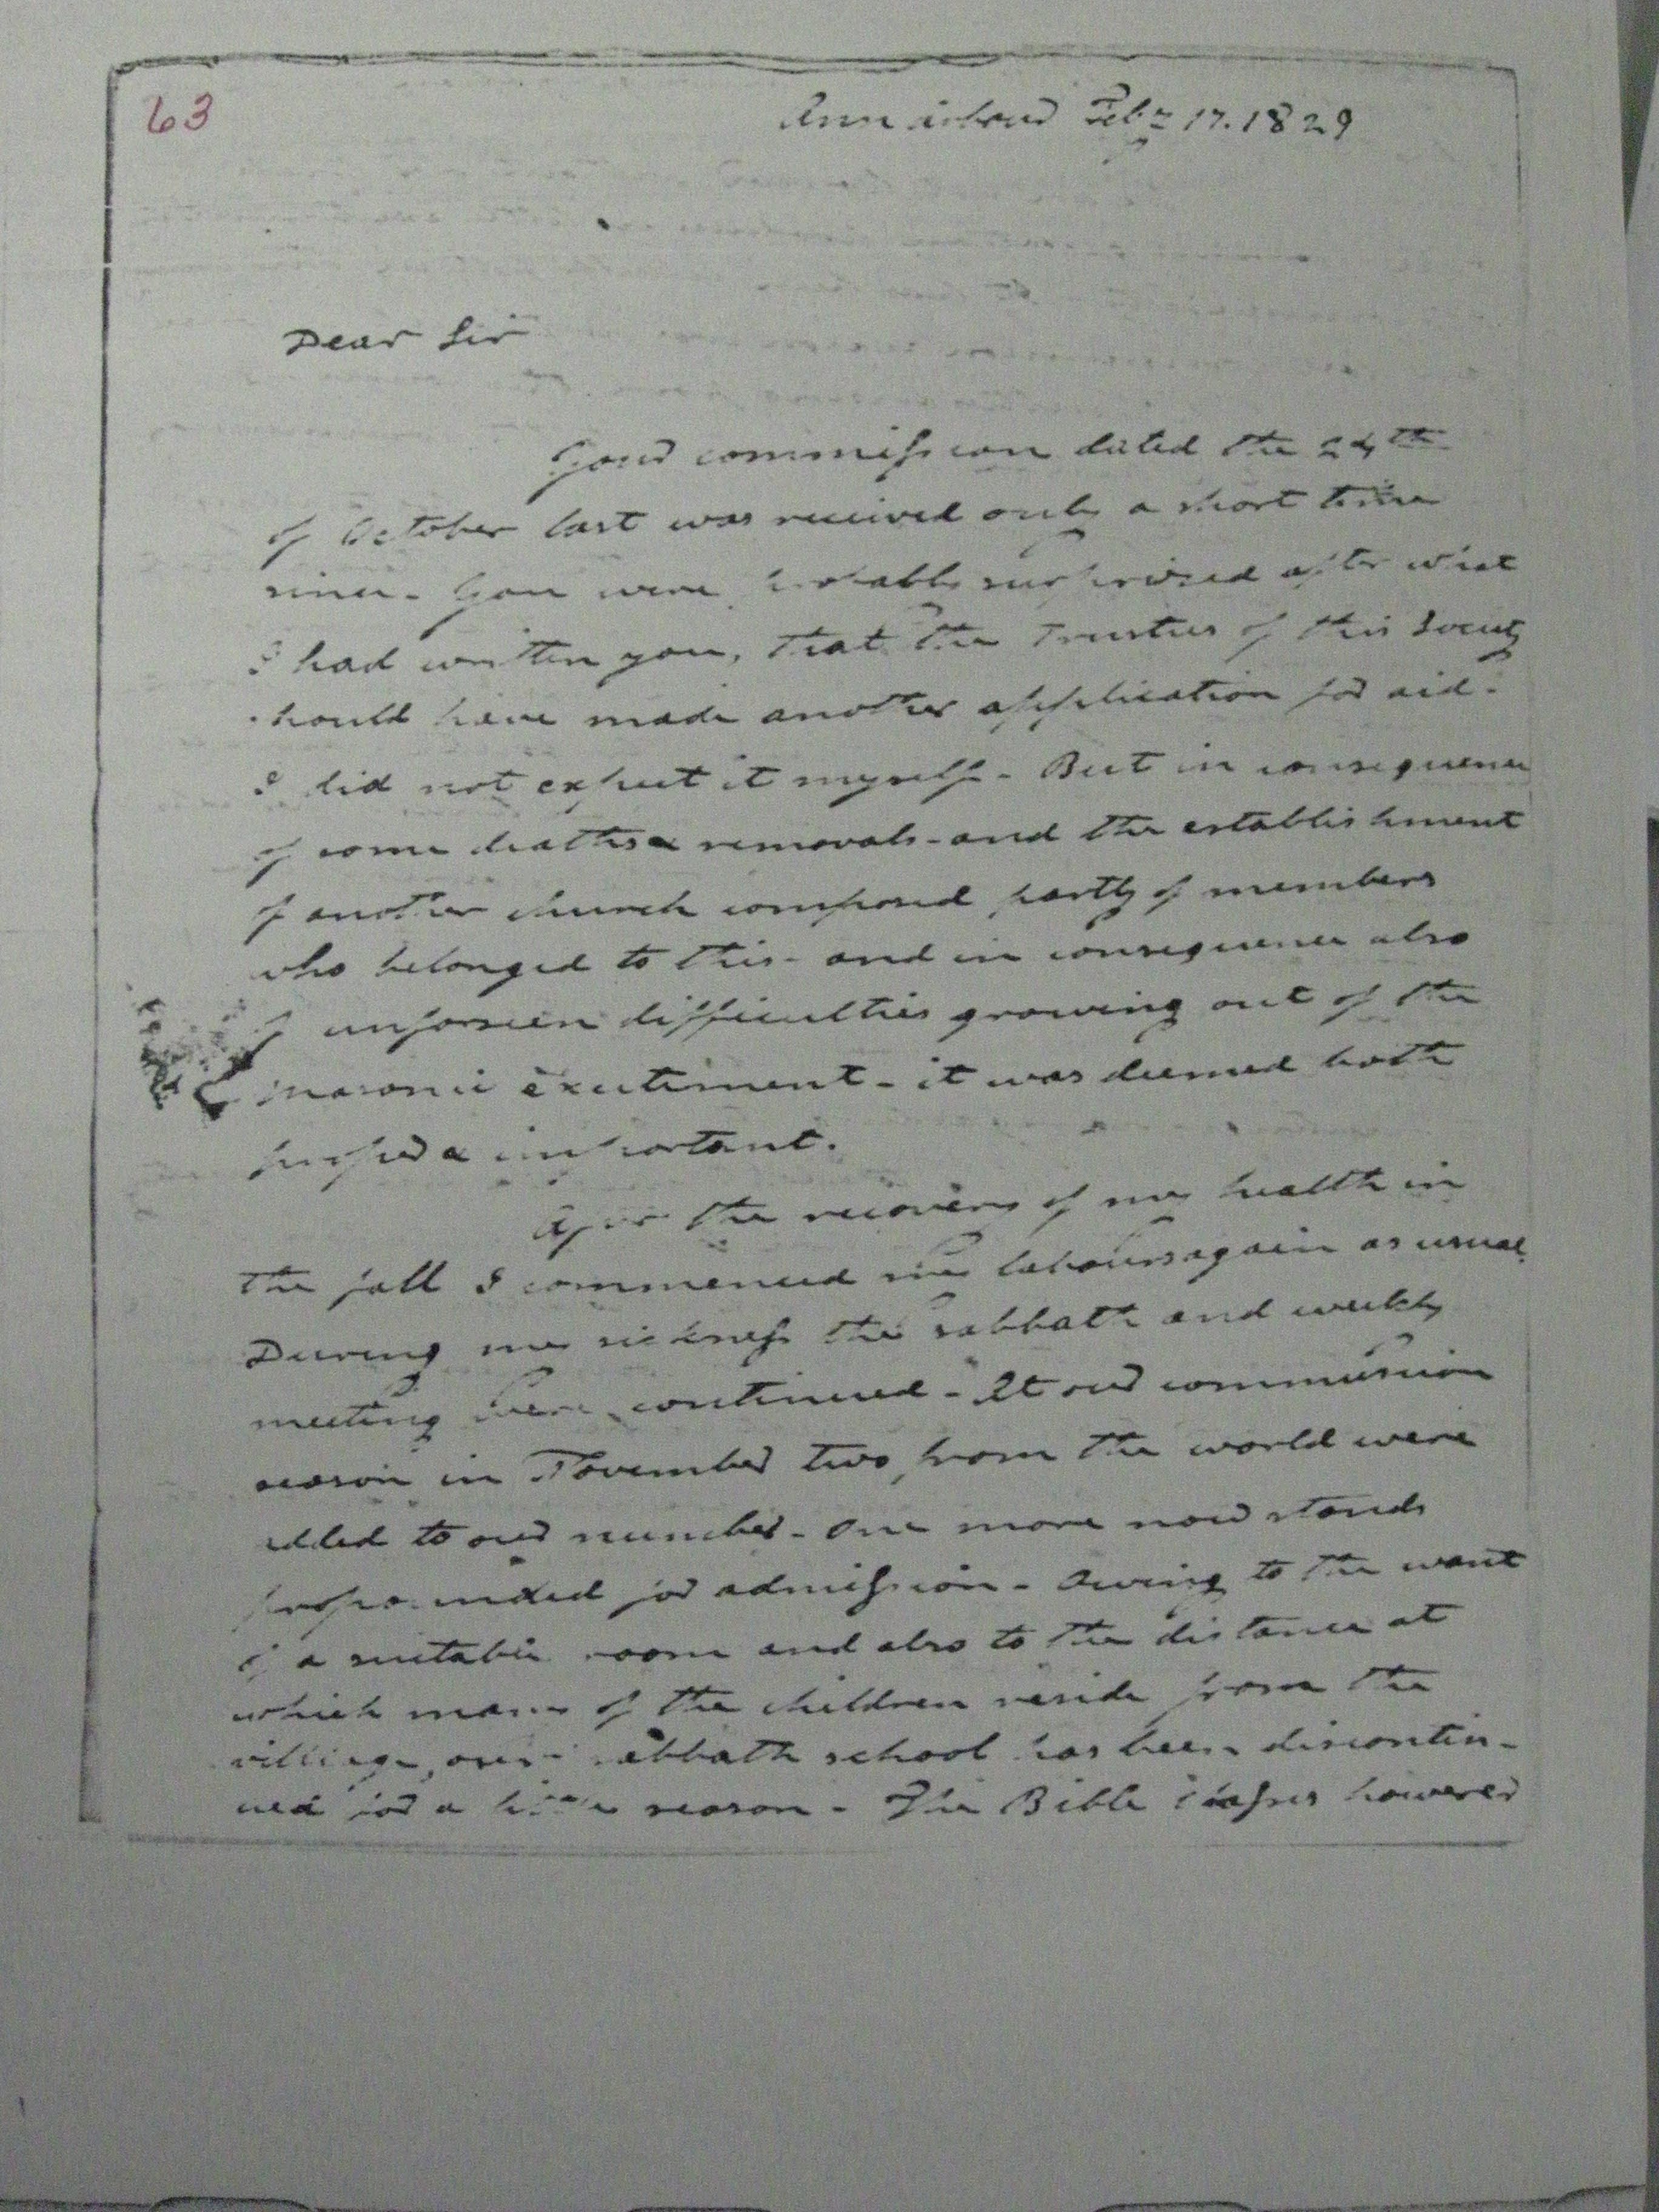 63
Ann arbour Feby 17. 1829
Dear Sir
Your commission dated the 24th
of October last was received only a short time
since - You were probably surprised after what
I had written you, that the Trustees of this Society
should have made another application for aid -
I did not expect it myself - But in consequence
of some deaths & removals - and the establishment
of another church composed partly of members
who belonged to this - and in consequence also
of unforseen difficulties growing out of the
masonic excitement - it was deemed both
proper & important.
After the recovery of my health in
the fall I commenced my labours again as usual
During my sickness the sabbath and weekly
meeting were continued - At our communion
season in November two from the world were
added to our number - One more now stands
propounded for admission - Owing to the want
of a suitable room and also to the distance at
which many of the children reside from the
village, our sabbath school has been discontin-
ued for a little season - The Bible classes however